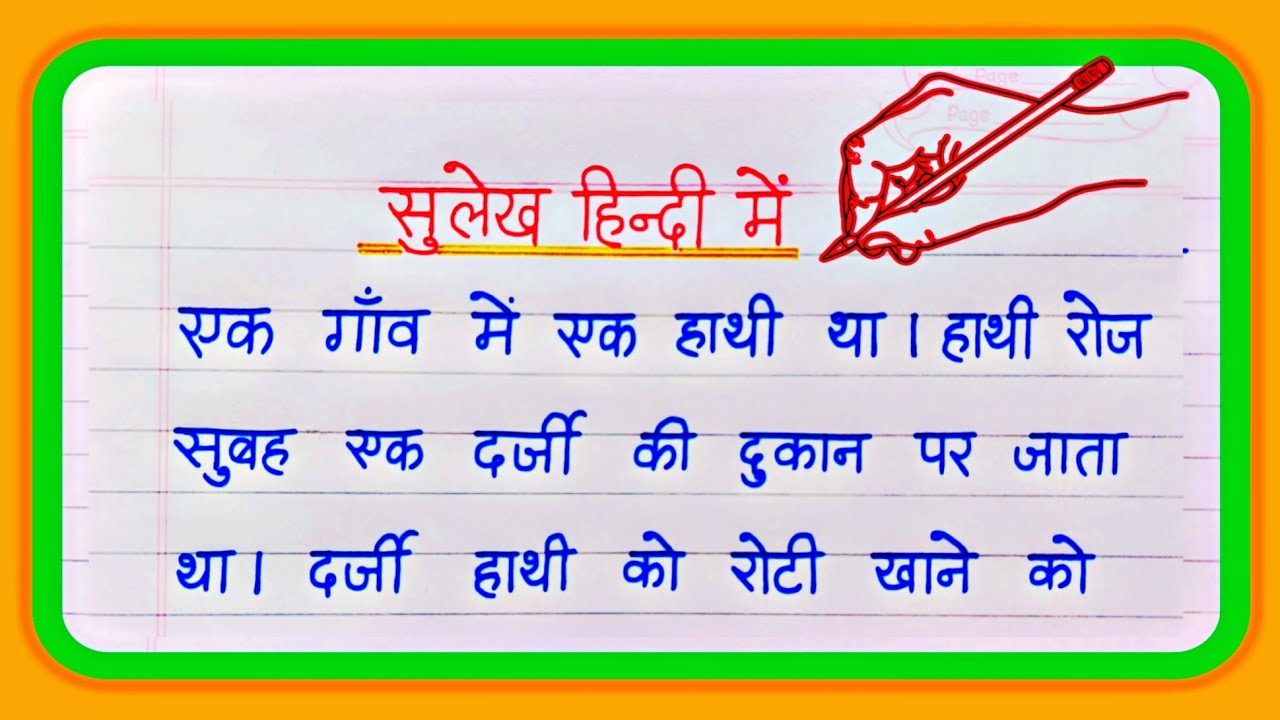 Page
Page
सुलेख हिन्दी में
एक गाँव में एक हाथी था । हाथी रोज
सुबह एक दर्जी की दुकान पर जाता
था । दर्जी हाथी को रोटी खाने को